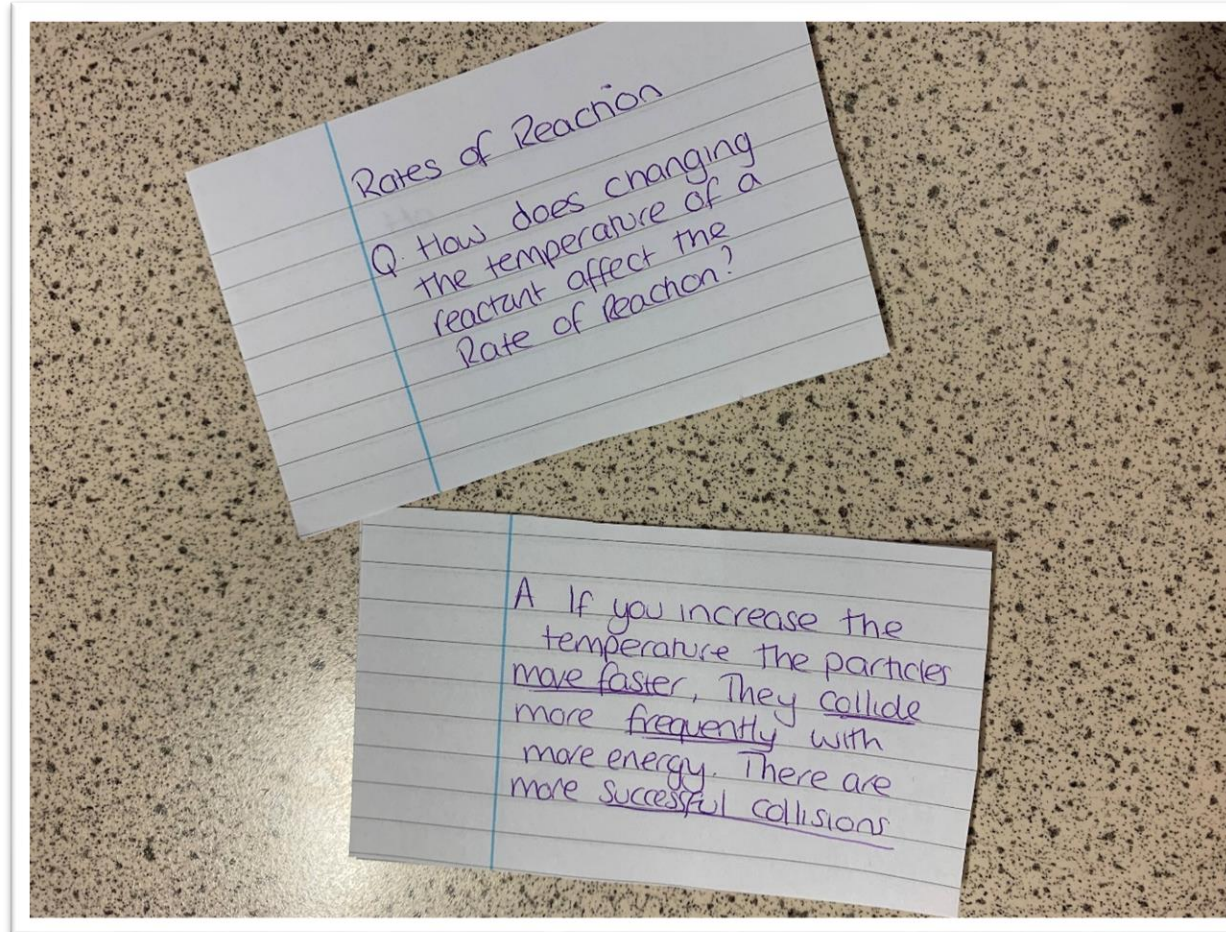 Rates of Reaction
Q. How does changing
the temperature of a
reactant affect the
Rate of Reaction?
A If you increase the
temperature the particles
move faster, They collide
more frequently with
more energy. There are
more successful collisions